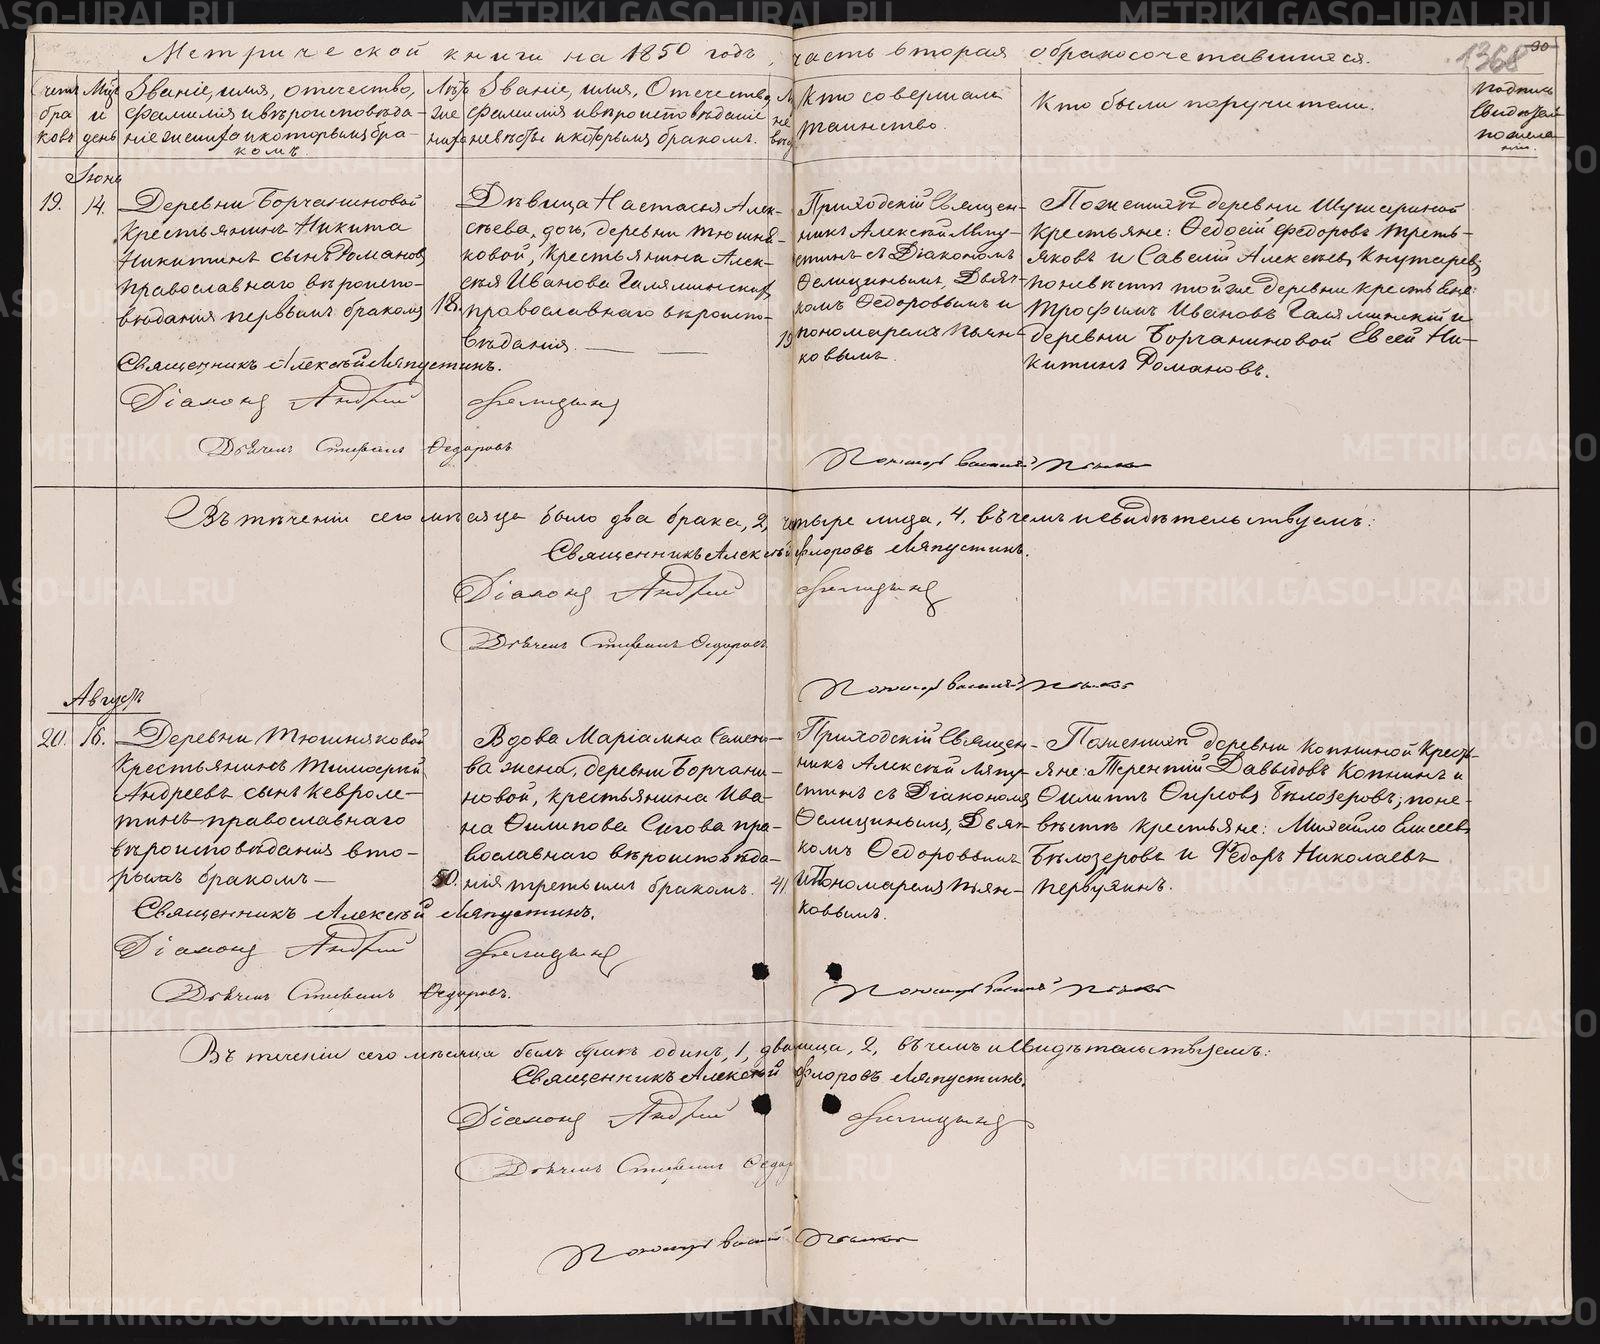 Метрической книги на 1850 годъ, часть вторая о бракосочетавшихся.
1368
90
Счетъ браковъ
Мцъ и день
Званіе, имя, отчество, фамилія и вѣроисповѣданіе жениха и которымъ бракомъ.
Лѣта жениха
Званіе, имя, Отечество, фамилія и вѣроисповѣданіе невѣсты и которымъ бракомъ.
Кто совершалъ таинство.
Кто были поручители.
Подпись Свидѣтелей по желанію.
Іюнь
19.
14.
Деревни Борчаниновой
Крестьянинъ Никита
Никитинъ сынъ Романовъ
православнаго вѣроиспо-
вѣданія первымъ бракомъ
18.
Дѣвица Настасья Алек-
сѣева, дочь, деревни Тюшня-
ковой, Крестьянина Алек-
сѣя Иванова Галяминскихъ
православнаго вѣроиспо-
вѣданія.
19
Приходскій Священ-
никъ Алексѣй Ляпу-
стинъ съ Діакономъ
Ѳелицинымъ, Дьяч-
комъ Ѳедоровымъ и
пономаремъ Пьян-
ковымъ.
По женихѣ деревни Шушариной
крестьяне: Ѳедосій Федоровъ Треть-
яковъ и Савелій Алексѣевъ
по невѣстѣ той же деревни крестьяне:
Трофимъ Ивановъ Галяминскій и
деревни Борчаниновой Евсей Ни-
китинъ Романовъ.
Священникъ Алексѣй Ляпустинъ.
Діаконъ Андрей Фелицынъ
Дьячекъ Стефанъ Ѳедоровъ
Пономарь Василій Пьянковъ
Въ теченіи сего мѣсяца было два брака, 2, четыре лица, 4. въ чемъ и свидѣтельствуемъ:
Священникъ Алексѣй Флоровъ Ляпустинъ.
Діаконъ Андрей Фелицынъ
Дьячекъ Стефанъ Ѳедоровъ
Пономарь Василій Пьянковъ
Августъ
20.
16.
Деревни Тюшняковой
Крестьянинъ Тимофей
Андреевъ сынъ Кевроле-
тинъ православнаго
вѣроисповѣданія вто-
рымъ бракомъ
50.
Вдова Маріамна Семено-
ва жена, деревни Борчани-
новой, крестьянина Ива-
на Филипова Сигова пра-
вославнаго вѣроисповѣда-
нія третьимъ бракомъ.
41
Приходскій Священ-
никъ Алексѣй Ляпу-
стинъ съ Діакономъ
Ѳелицинымъ, Дьяч-
комъ Ѳедоровымъ
и Пономаремъ Пьян-
ковымъ.
По женихѣ деревни Копниной Кресть-
яне: Терентій Давыдовъ Копнинъ и
Филипъ Фирсовъ Бѣлозеровъ, по не-
вѣстѣ крестьяне: Михайло Елисеевъ
Бѣлозеровъ и Ѳедоръ Николаевъ
Первушинъ.
Священникъ Алексѣй Ляпустинъ.
Діаконъ Андрей Фелицынъ
Дьячекъ Стефанъ Ѳедоровъ.
Пономарь Василій Пьянковъ
Въ теченіи сего мѣсяца былъ бракъ одинъ, 1, два лица, 2, въ чемъ и свидѣтельствуемъ:
Священникъ Алексѣй Флоровъ Ляпустинъ.
Діаконъ Андрей Фелицынъ
Дьячекъ Стефанъ Ѳедоровъ
Пономарь Василій Пьянковъ
METRIKI.GASO-URAL.RU